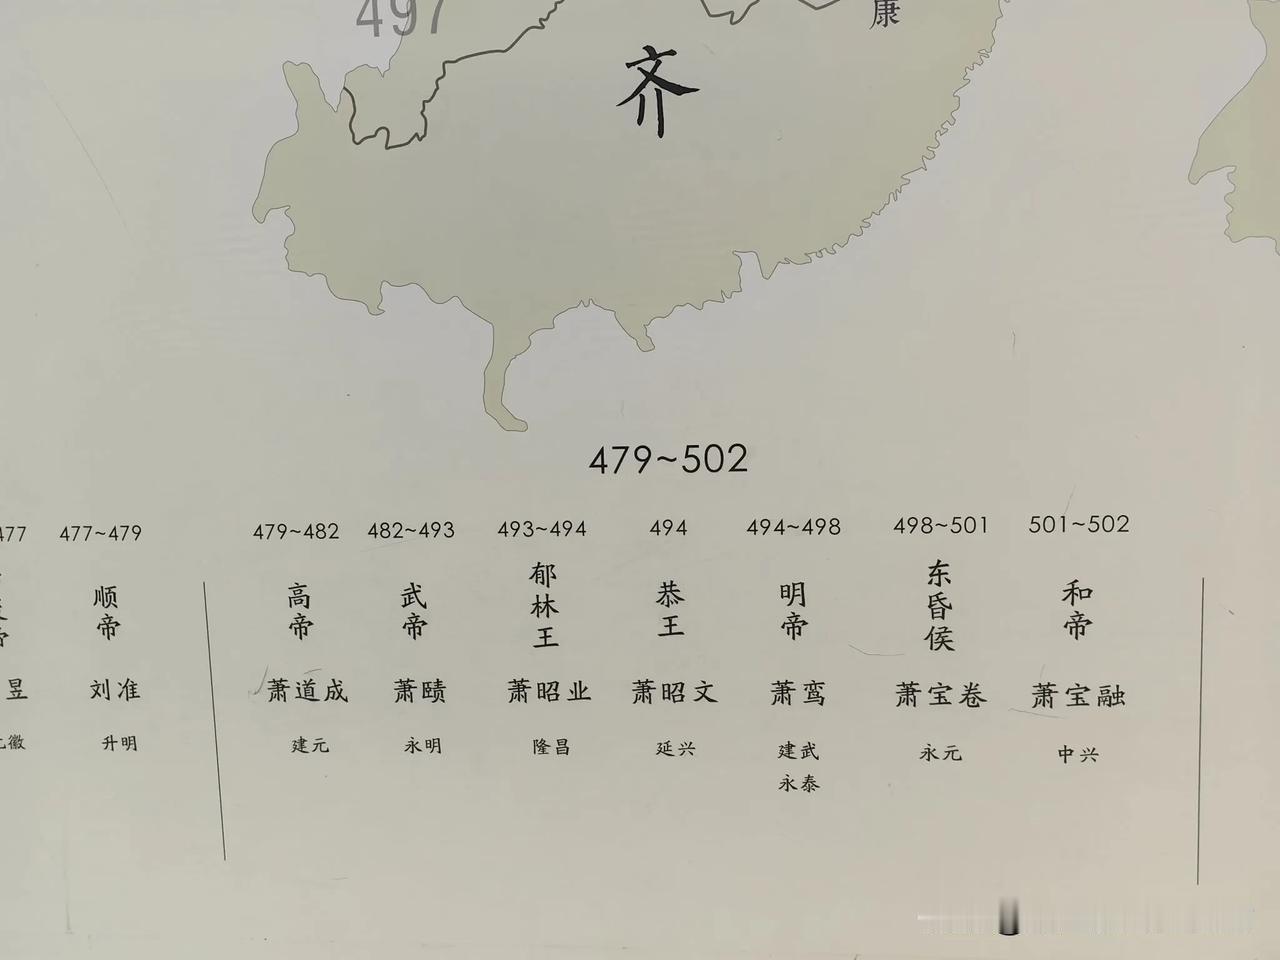 497
康
齐
479~502
477 477~479 479~482 482~493 493~494 494 494~498 498~501 501~502
顺帝 高帝 武帝 郁林王 恭王 明帝 东昏侯 和帝
昱 刘准 萧道成 萧赜 萧昭业 萧昭文 萧鸾 萧宝卷 萧宝融
徽 升明 建元 永明 隆昌 延兴 建武 永元 中兴
永泰